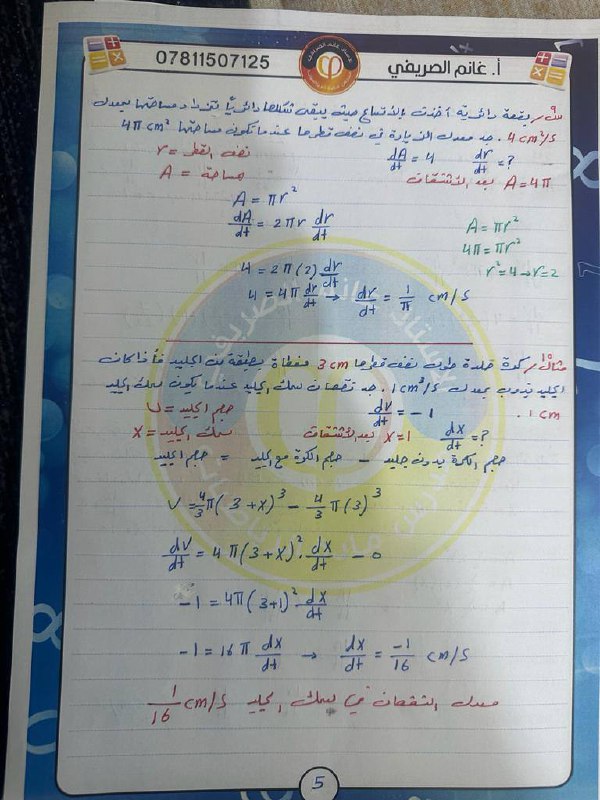 أ. غانم الصريفي
07811507125
س9/ بقعة دائرية أخذت بالاتساع بحيث يبقى شكلها دائرياً تزداد مساحتها بمعدل
4 cm²/s . جد معدل الزيادة في نصف قطرها عندما تكون مساحتها 4π cm²
نصف القطر = r dA/dt = 4 dr/dt = ?
مساحة = A بعد الاشتقاق A = 4π
A = πr²
dA/dt = 2πr dr/dt
A = πr²
4π = πr²
r² = 4 → r = 2
4 = 2π(2) dr/dt
4 = 4π dr/dt → dr/dt = 1/π cm/s
مثال/ كرة صلدة طول نصف قطرها 3 cm مغطاة بطبقة من الجليد فأذا كان
الجليد يذوب بمعدل 1 cm³/s . جد نقصان سمك الجليد عندما يكون سمك الجليد
1 cm .
حجم الجليد = V dv/dt = -1
سمك الجليد = X بعد الاشتقاق X = 1 dx/dt = ?
حجم الجليد = حجم الكرة مع الجليد - حجم الكرة بدون جليد
V = 4/3 π(3+x)³ - 4/3 π(3)³
dv/dt = 4π(3+x)² . dx/dt - 0
-1 = 4π(3+1)² . dx/dt
-1 = 16π dx/dt → dx/dt = -1/16 cm/s
معدل النقصان في سمك الجليد 1/16 cm/s
5